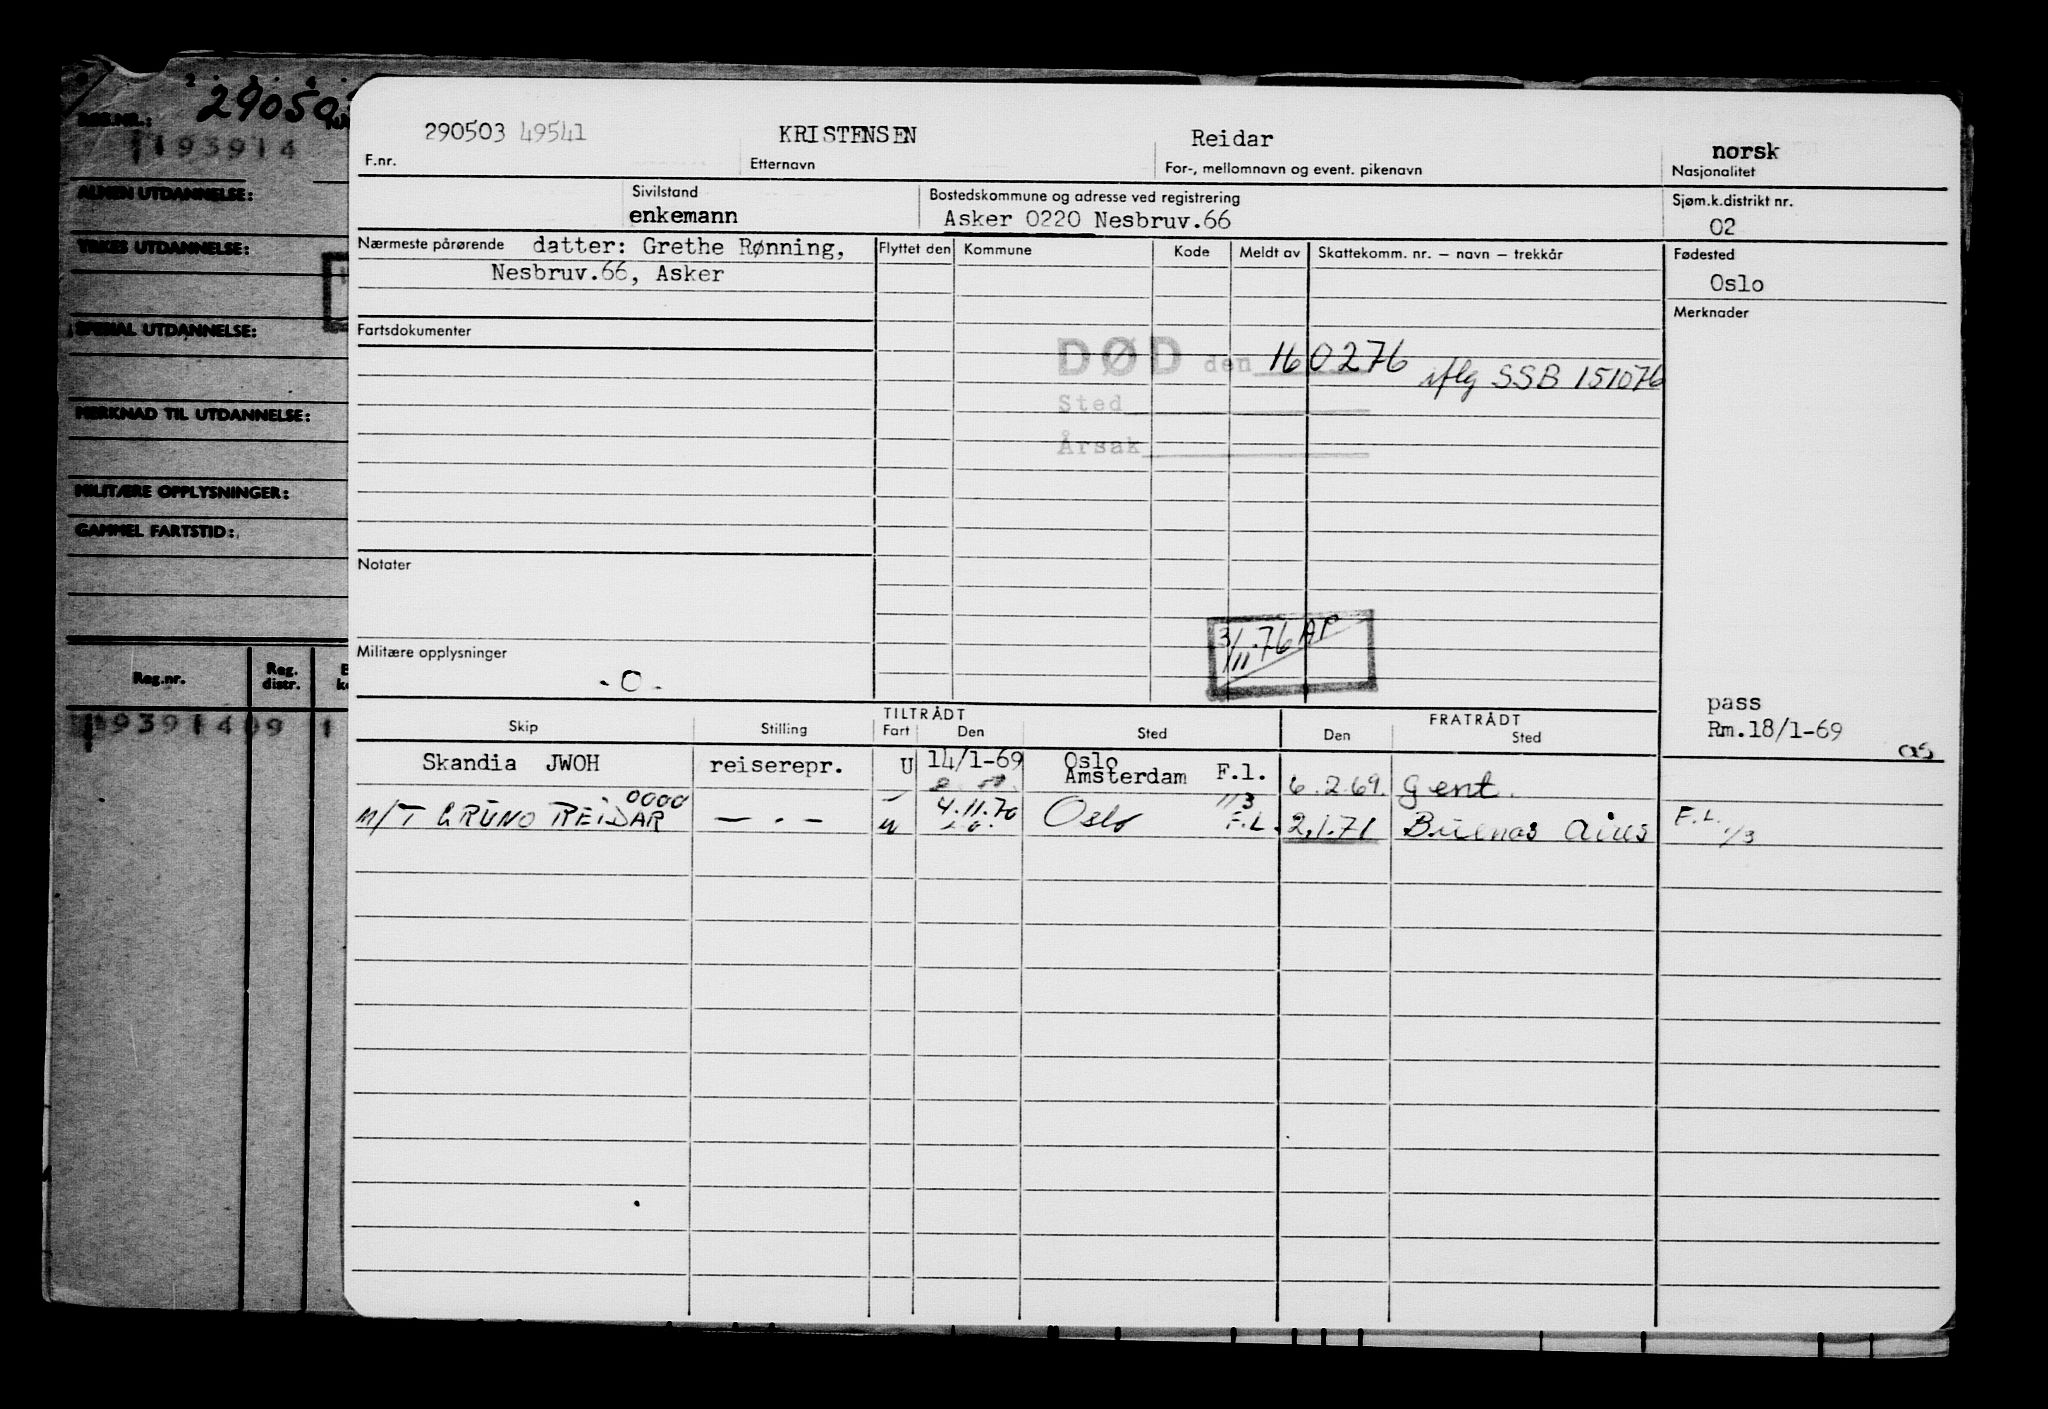 29050
REG.NR.:
193914
ALMEN UTDANNELSE:
YRKES UTDANNELSE:
SPESIAL UTDANNELSE:
MERKNAD TIL UTDANNELSE:
MILITÆRE OPPLYSNINGER:
GAMMEL FARTSTID:
Reg.nr. Reg. distr.
193914 09 1
290503 49541 KRISTENSEN Reidar norsk
F.nr. Etternavn For-, mellomnavn og event. pikenavn Nasjonalitet
Sivilstand Bostedskommune og adresse ved registrering Sjøm.k.distrikt nr.
enkemann Asker 0220 Nesbruv.66 02
Nærmeste pårørende datter: Grethe Rønning, Flyttet den Kommune Kode Meldt av Skattekomm. nr. – navn – trekkår Fødested
Nesbruv.66, Asker Oslo
Merknader
Fartsdokumenter
DØD den 160276 iflg SSB 151076
Sted
Årsak
Notater
3/11.76 AP
Militære opplysninger
-0-
pass
Rm.18/1-69
TILTRÅDT FRATRÅDT
Skip Stilling Fart Den Sted Den Sted
Skandia JWOH reiserepr. U 14/1-69 Oslo
Amsterdam F.l. 6.2.69. Gent.
0000 1/3
M/T BRUNO REIDAR — . — u 4.11.70 Oslo F.L. 2.1.71 Buenos Aires F.L. 1/3